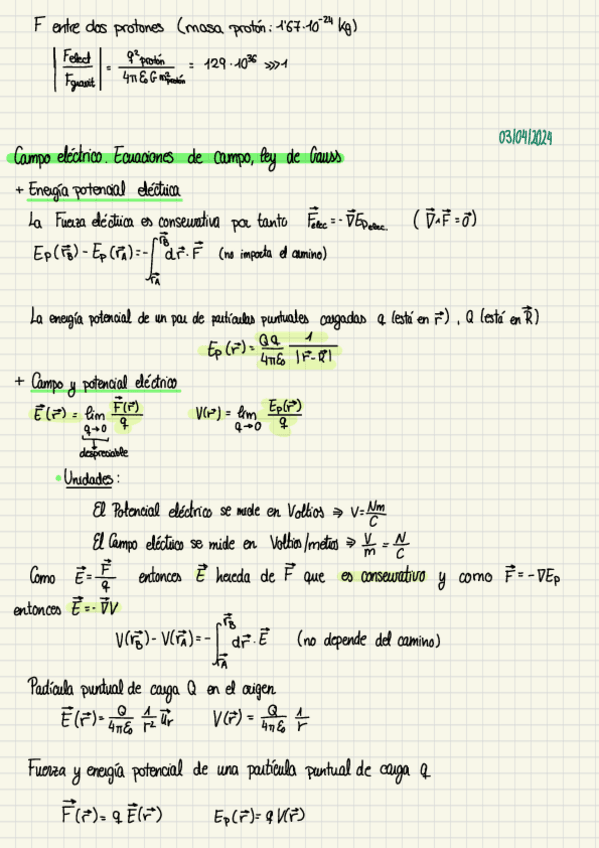 F entre dos protones (masa protón: 1'67·10⁻²⁴ kg)
|F_elect / F_gravit| = q² protón / 4π ε₀ G m² protón = 129·10³⁶ >>> 1
03/04/2024
Campo eléctrico. Ecuaciones de campo, ley de Gauss
+ Energía potencial eléctrica
La Fuerza eléctrica es conservativa por tanto F⃗elec = - ∇⃗Ep elec. ( ∇⃗∧F⃗ = 0⃗ )
Ep(r⃗B) - Ep(r⃗A) = - ∫_{r⃗A}^{r⃗B} dr⃗ · F⃗ (no importa el camino)
La energía potencial de un par de partículas puntuales cargadas q (está en r⃗), Q (está en R⃗)
Ep(r⃗) = Qq / 4πε₀ 1 / |r⃗ - R⃗|
+ Campo y potencial eléctrico
E⃗(r⃗) = lim q→0 F⃗(r⃗) / q V(r⃗) = lim q→0 Ep(r⃗) / q
despreciable
• Unidades:
El Potencial eléctrico se mide en Voltios ⇒ V = Nm / C
El Campo eléctrico se mide en Voltios/metros ⇒ V / m = N / C
Como E⃗ = F⃗ / q entonces E⃗ hereda de F⃗ que es conservativo y como F⃗ = - ∇Ep
entonces E⃗ = - ∇⃗V
V(r⃗B) - V(r⃗A) = - ∫_{r⃗A}^{r⃗B} dr⃗ · E⃗ (no depende del camino)
Partícula puntual de carga Q en el origen
E⃗(r⃗) = Q / 4πε₀ 1 / r² u⃗r V(r⃗) = Q / 4πε₀ 1 / r
Fuerza y energía potencial de una partícula puntual de carga q
F⃗(r⃗) = q E⃗(r⃗) Ep(r⃗) = q V(r⃗)